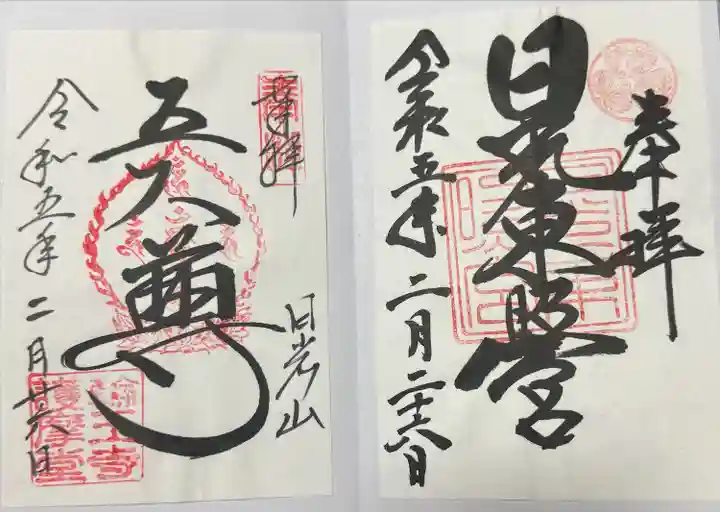 奉拝
日光東照宮
令和五年二月二十六日
奉拝
日光山
五大尊
令和五年二月廿六日
輪王寺
護摩堂